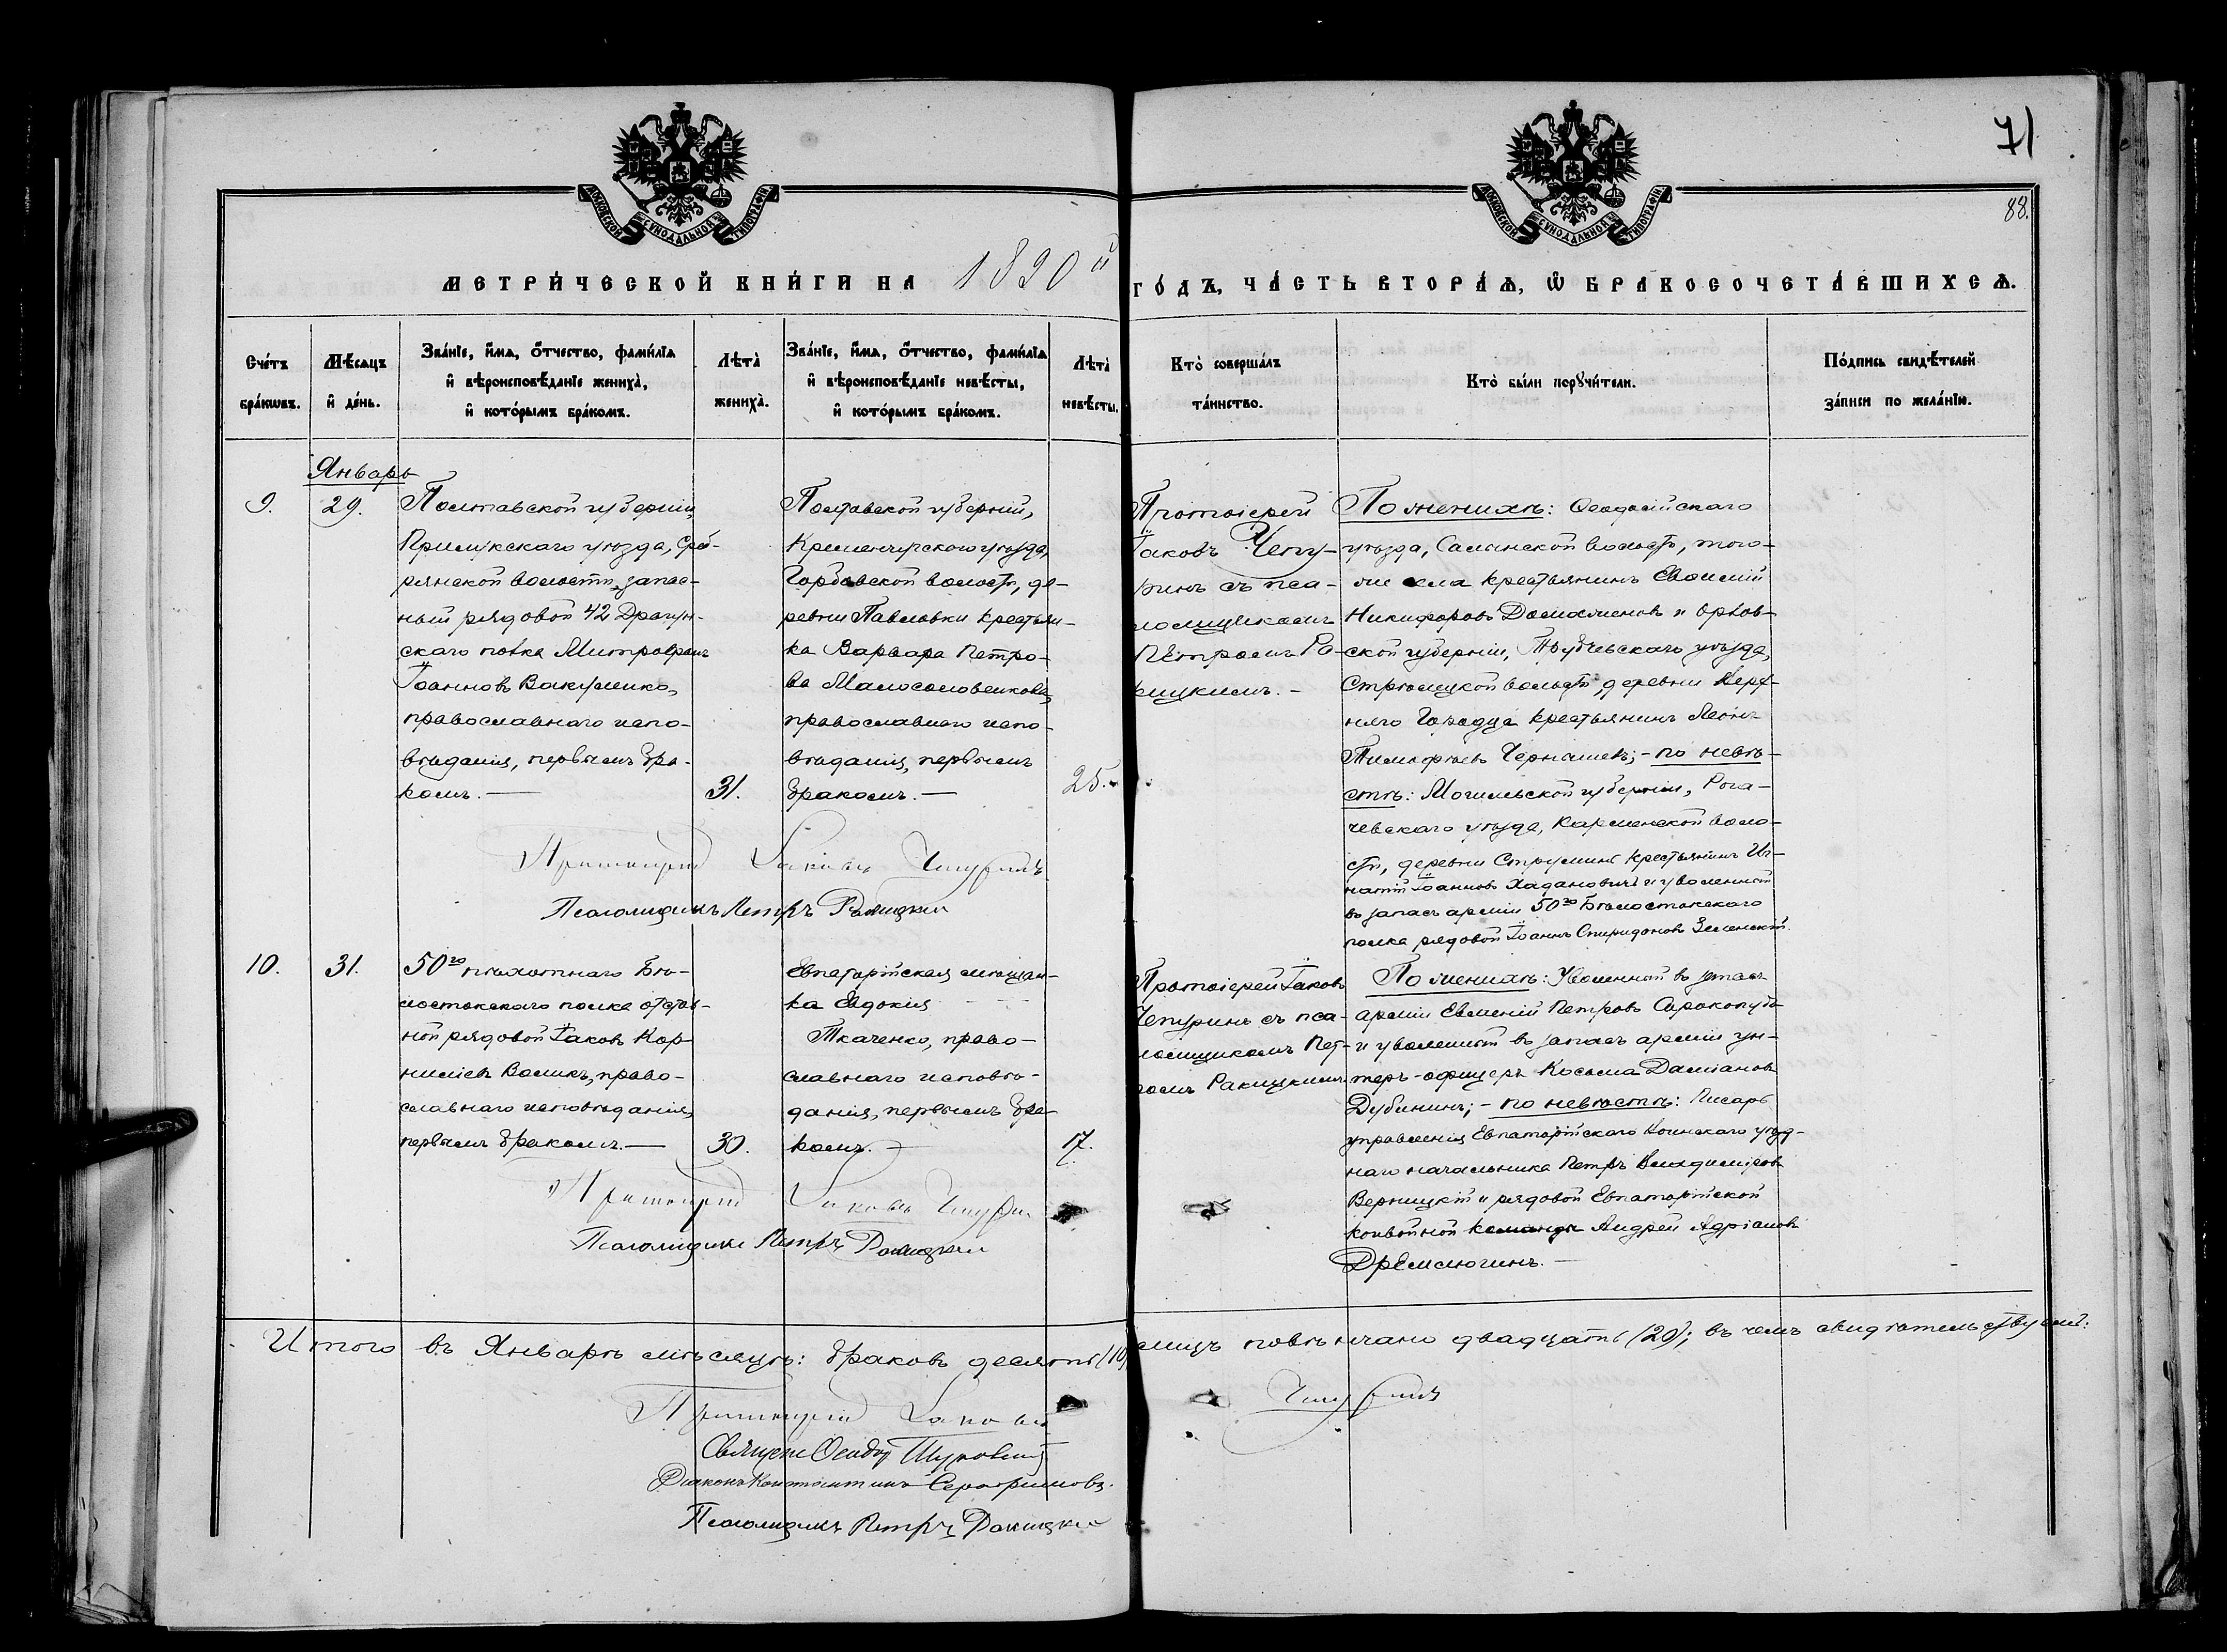 71
88.
МОСКОВСКОЙ СѴНОДАЛЬНОЙ ТИПОГРАФІИ
МОСКОВСКОЙ СѴНОДАЛЬНОЙ ТИПОГРАФІИ
МЕТРИ́ЧЕСКОЙ КНИ́ГИ НА 1890й ГО́ДЪ, ЧА́СТЬ ВТОРА́Ѧ, Ѡ҆ БРАКОСОЧЕТА́ВШИХСѦ.
Сче́тъ
бра́кѡвъ.
Мѣ́сѧцъ
и҆ де́нь.
Зва́нїе, и҆́мѧ, ѻ҆́тчество, фами́лїѧ
и҆ вѣроисповѣ́данїе жениха̀,
и҆ кото́рымъ бра́комъ.
Лѣта̀
жениха̀.
Зва́нїе, и҆́мѧ, ѻ҆́тчество, фами́лїѧ
и҆ вѣроисповѣ́данїе невѣ́сты,
и҆ кото́рымъ бра́комъ.
Лѣта̀
невѣ́сты.
Кто̀ соверша́лъ
та́инство.
Кто̀ бы́ли порꙋчи́тели.
По́дпись свидѣ́телей
за́писи по жела́нїю.
Январь
9.
29.
Полтавской губерніи,
Прилукскаго уѣзда, Срѣ-
рянской волости, запас-
ный рядовой 42 Драгун-
скаго полка Митрофанъ
Іоанновъ Вакуленко,
православнаго испо-
вѣданія, первымъ бра-
комъ. —
31.
Полтавской губерніи,
Кременчугскаго уѣзда,
Горбовской волости, де-
ревни Павловки крестьян-
ка Варвара Петро-
ва Малосоловенкова,
православнаго испо-
вѣданія, первымъ
бракомъ. —
25.
Протоіерей
Іаковъ Чепу-
ринъ съ пса-
ломщикомъ
Петромъ Ра-
кицкимъ. —
По женихѣ: Ѳеодосійскаго
уѣзда, Салынской волости, того-
же села крестьянинъ Евѳимій
Никифоровъ и Орлов-
ской губерніи, Трубчевскаго уѣзда,
Стрѣлецкой волости, деревни Верх-
няго Городца крестьянинъ Леонъ
Тимофѣевъ Чернышевъ; — по невѣ-
стѣ: Могилевской губерніи, Рога-
чевскаго уѣзда, волo-
сти, деревни Струмень крестьянинъ Иг-
натій Іоанновъ Хадановичъ и уволенный
въ запасъ арміи 50го Бѣлостокскаго
полка рядовой Іоаннъ Спиридоновъ Зеленскій.
Протоіерей Іаковъ Чепуринъ
Псаломщикъ Петръ Ракицкій
10.
31.
50го пѣхотнаго Бѣ-
лостокскаго полка отстав-
ной рядовой Іаковъ Кор-
ниліевъ Воликъ, право-
славнаго исповѣданія,
первымъ бракомъ. —
30.
Евпаторійская мѣщан-
ка Евдокія
Ткаченко, право-
славнаго исповѣ-
данія, первымъ бра-
комъ. —
17.
Протоіерей Іаковъ
Чепуринъ съ пса-
ломщикомъ Пет-
ромъ Ракицкимъ
По женихѣ: Уволенный въ запасъ
арміи Евмений Петровъ Сорокопудъ
и уволенный въ запасъ арміи ун-
теръ-офицеръ Косьма Даміановъ
Дубининъ; — по невѣстѣ: Писарь
управленія Евпаторійскаго Воинскаго уѣзд-
наго начальника Петръ Владиміровъ
Верницкій и рядовой Евпаторійской
конвойной команды Андрей Адріановъ
Дремлюгинъ. —
Протоіерей Іаковъ Чепуринъ
Псаломщикъ Петръ Ракицкій
Итого въ Январѣ мѣсяцѣ: браковъ десять (10) лицъ повѣнчано двадцать (20); въ чемъ свидѣтельствуемъ:
Протоіерей Іаковъ Чепуринъ
Священ Ѳеодоръ
Діаконъ Константинъ Серафимовъ.
Псаломщикъ Петръ Ракицкій